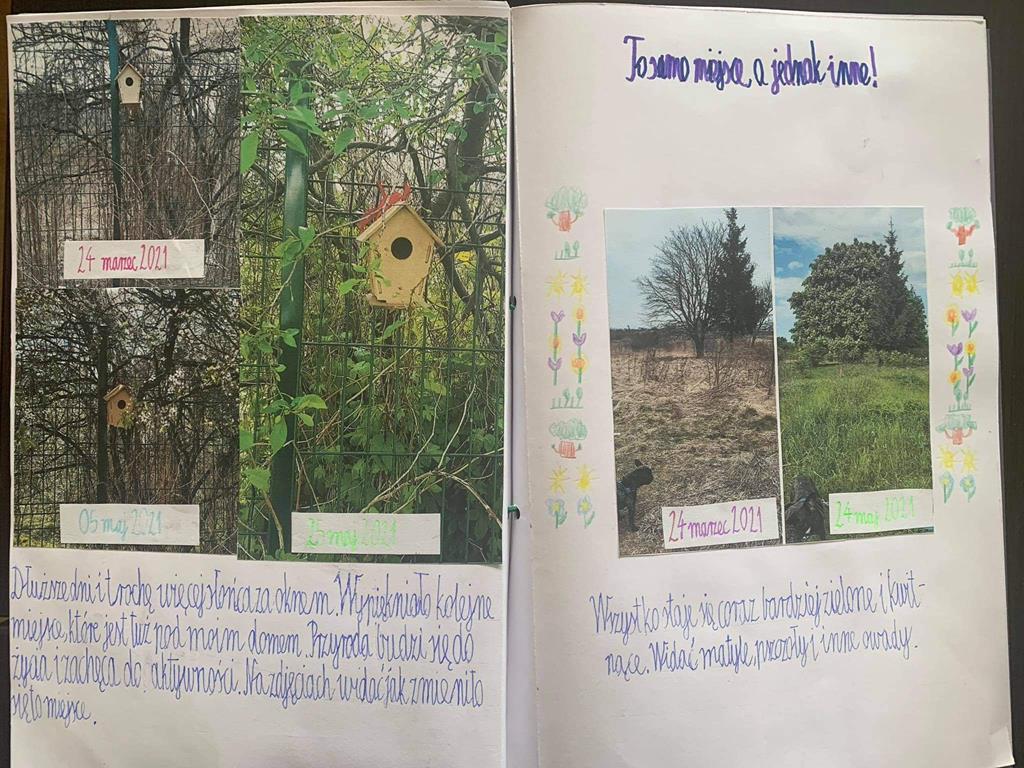 24 marzec 2021
05 maj 2021
25 maj 2021
Dłuższe dni i trochę więcej słońca za oknem. Wypiękniało kolejne
miejsce, które jest tuż pod moim domem. Przyroda budzi się do
życia i zachęca do aktywności. Na zdjęciach widać jak zmieniło
się to miejsce.
To samo miejsce, a jednak inne!
24 marzec 2021
24 maj 2021
Wszystko staje się coraz bardziej zielone i kwit-
nące. Widać motyle, pszczoły i inne owady.